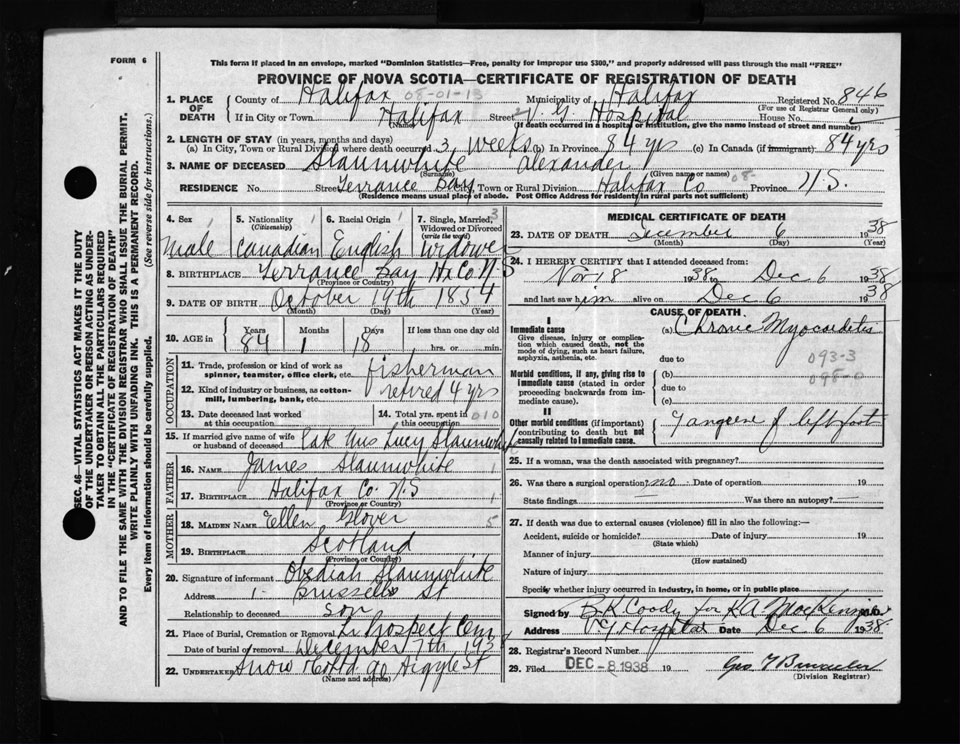 FORM 6
This form if placed in an envelope, marked "Dominion Statistics—Free, penalty for improper use $300," and properly addressed will pass through the mail "FREE"
PROVINCE OF NOVA SCOTIA—CERTIFICATE OF REGISTRATION OF DEATH
SEC. 46—VITAL STATISTICS ACT MAKES IT THE DUTY
OF THE UNDERTAKER OR PERSON ACTING AS UNDER-
TAKER TO OBTAIN ALL THE PARTICULARS REQUIRED
IN THE "CERTIFICATE OF REGISTRATION OF DEATH"
AND TO FILE THE SAME WITH THE DIVISION REGISTRAR WHO SHALL ISSUE THE BURIAL PERMIT.
WRITE PLAINLY WITH UNFADING INK. THIS IS A PERMANENT RECORD.
Every item of Information should be carefully supplied. (See reverse side for instructions.)
1. PLACE OF DEATH
County of Halifax 08-01-13 Municipality of Halifax Registered No. 846
(For use of Registrar General only)
If in City or Town Halifax Street V. G Hospital House No.
(Name)
(If death occurred in a hospital or institution, give the name instead of street and number)
2. LENGTH OF STAY (in years, months and days)
(a) In City, Town or Rural Division where death occurred 3 weeks (b) In Province 84 yrs (c) In Canada (if immigrant) 84 yrs
3. NAME OF DECEASED Slaunwhite Alexander
(Surname) (Given name or names)
RESIDENCE No. Street Terrance Bay City, Town or Rural Division Halifax Co 08- Province N.S.
(Residence means usual place of abode. Post Office Address for residents in rural parts not sufficient)
4. Sex male
5. Nationality (Citizenship) Canadian
6. Racial Origin English
7. Single, Married, Widowed or Divorced (write the word) Widower
8. BIRTHPLACE Terrance Bay Hx Co N S
(Province or Country)
9. DATE OF BIRTH October 19th 1854
(Month) (Day) (Year)
10. AGE in Years 84 Months 1 Days 18 If less than one day old hrs. or min.
OCCUPATION
11. Trade, profession or kind of work as spinner, teamster, office clerk, etc. fisherman
12. Kind of industry or business, as cotton-mill, lumbering, bank, etc. retired 4 yrs
13. Date deceased last worked at this occupation
14. Total yrs. spent in this occupation 010
15. If married give name of wife or husband of deceased late Mrs Lucy Slaunwhite
FATHER
16. NAME James Slaunwhite
17. BIRTHPLACE Halifax Co. N.S
(Province or Country)
MOTHER
18. MAIDEN NAME Ellen Glover
19. BIRTHPLACE Scotland
(Province or Country)
20. Signature of informant Obediah Slaunwhite
Address 1 Brussells St
Relationship to deceased son
21. Place of Burial, Cremation or Removal Lr Prospect Cem
Date of burial or removal December 7th 1938
22. UNDERTAKER Snow & Co Ltd 90 Argyle St
(Name and address)
MEDICAL CERTIFICATE OF DEATH
23. DATE OF DEATH December 6 1938
(Month) (Day) (Year)
24. I HEREBY CERTIFY that I attended deceased from:
Nov 18 1938 to Dec 6 1938
and last saw him alive on Dec 6 1938
CAUSE OF DEATH
I
Immediate cause
Give disease, injury or complication which caused death, not the mode of dying, such as heart failure, asphyxia, asthenia, etc.
(a) Chronic Myocarditis
due to 093-3
Morbid conditions, if any, giving rise to immediate cause (stated in order proceeding backwards from immediate cause).
(b) 098-0
due to
(c)
II
Other morbid conditions (if important) contributing to death but not causally related to immediate cause.
Gangrene of left foot
25. If a woman, was the death associated with pregnancy?
26. Was there a surgical operation? no. Date of operation 19
State findings Was there an autopsy?
27. If death was due to external causes (violence) fill in also the following:—
Accident, suicide or homicide? Date of injury 19
(State which)
Manner of injury
(How sustained)
Nature of injury
Specify whether injury occurred in industry, in home, or in public place
Signed by B.K. Coady for K A MacKenzie M.D.
Address V G Hospital Date Dec 6 1938
28. Registrar's Record Number
29. Filed DEC - 8 1938 19
(Division Registrar)